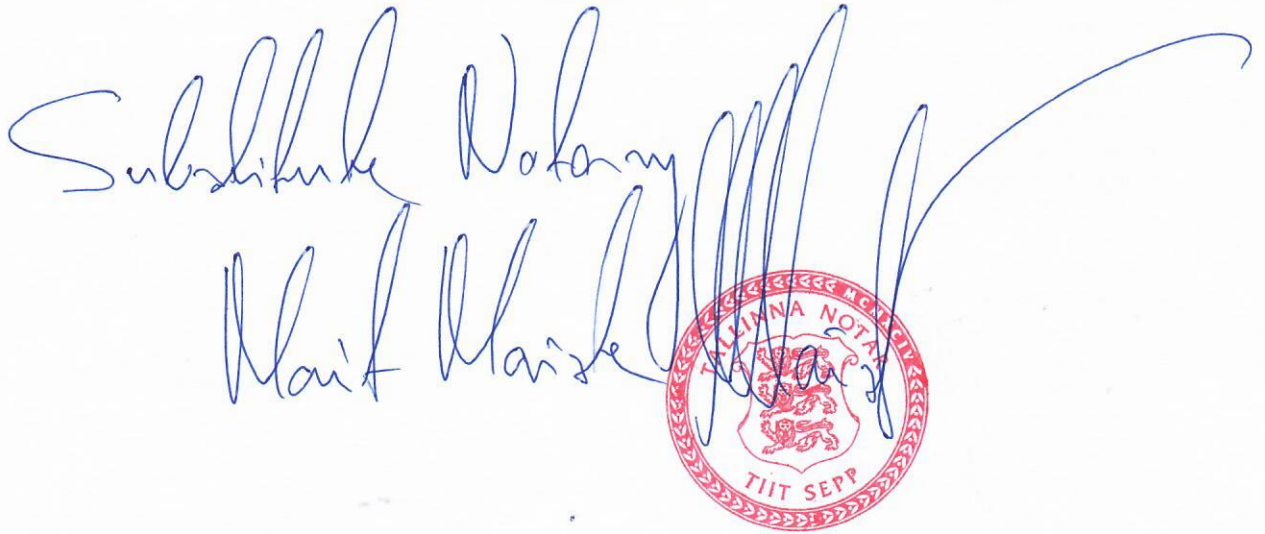 Substitute Notary
Mait Maiste
TALLINNA NOTAR
TIIT SEPP